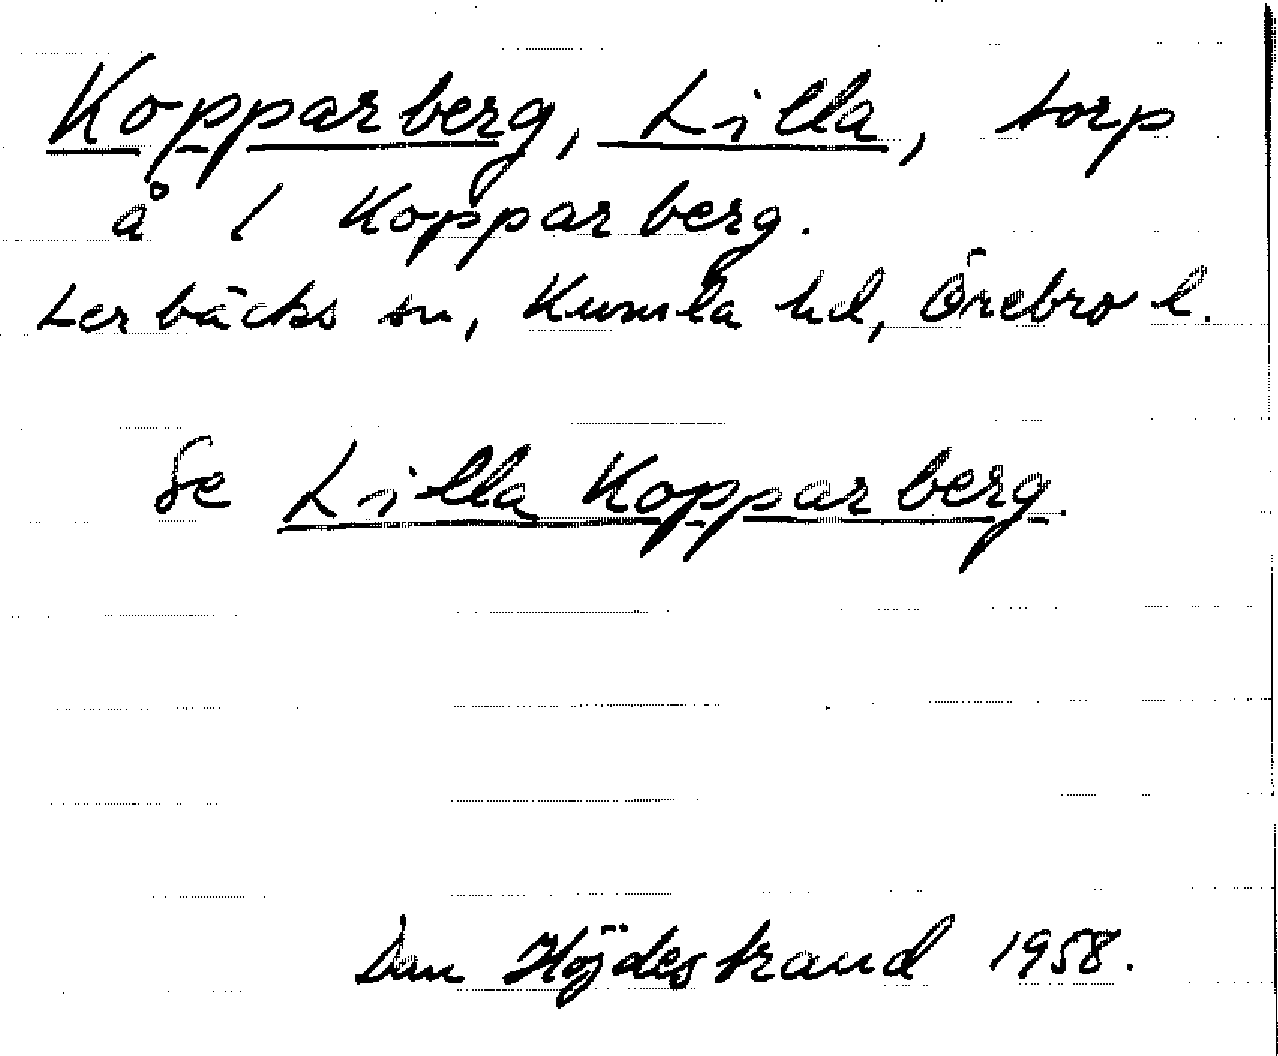 Kopparberg, Lilla, torp
å 1 Kopparberg.
Lerbäcks sn, Kumla hd, Örebro l.
Se Lilla Kopparberg.
Dan Höjdestrand 1958.